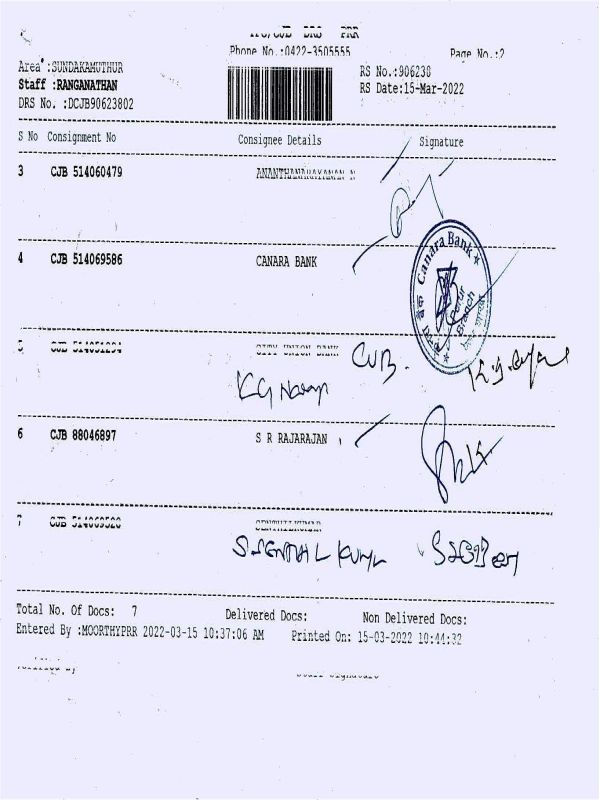 DRS PRR
Phone No.:0422-3505555 Page No.:2
Area :SUNDAKAMUTHUR RS No.:906238
Staff :RANGANATHAN RS Date:15-Mar-2022
DRS No. :DCJB90623802
S No Consignment No Consignee Details Signature
3 CJB 514060479 ANANTHANARAYANAN N
4 CJB 514069586 CANARA BANK
Canara Bank
Perur
Branch
5 CJB CITY UNION BANK CUB.
6 CJB 88046897 S R RAJARAJAN
7 CJB 514069520 SENTHILKUMAR
Total No. Of Docs: 7 Delivered Docs: Non Delivered Docs:
Entered By :MOORTHYPRR 2022-03-15 10:37:06 AM Printed On: 15-03-2022 10:44:32
Staff Signature